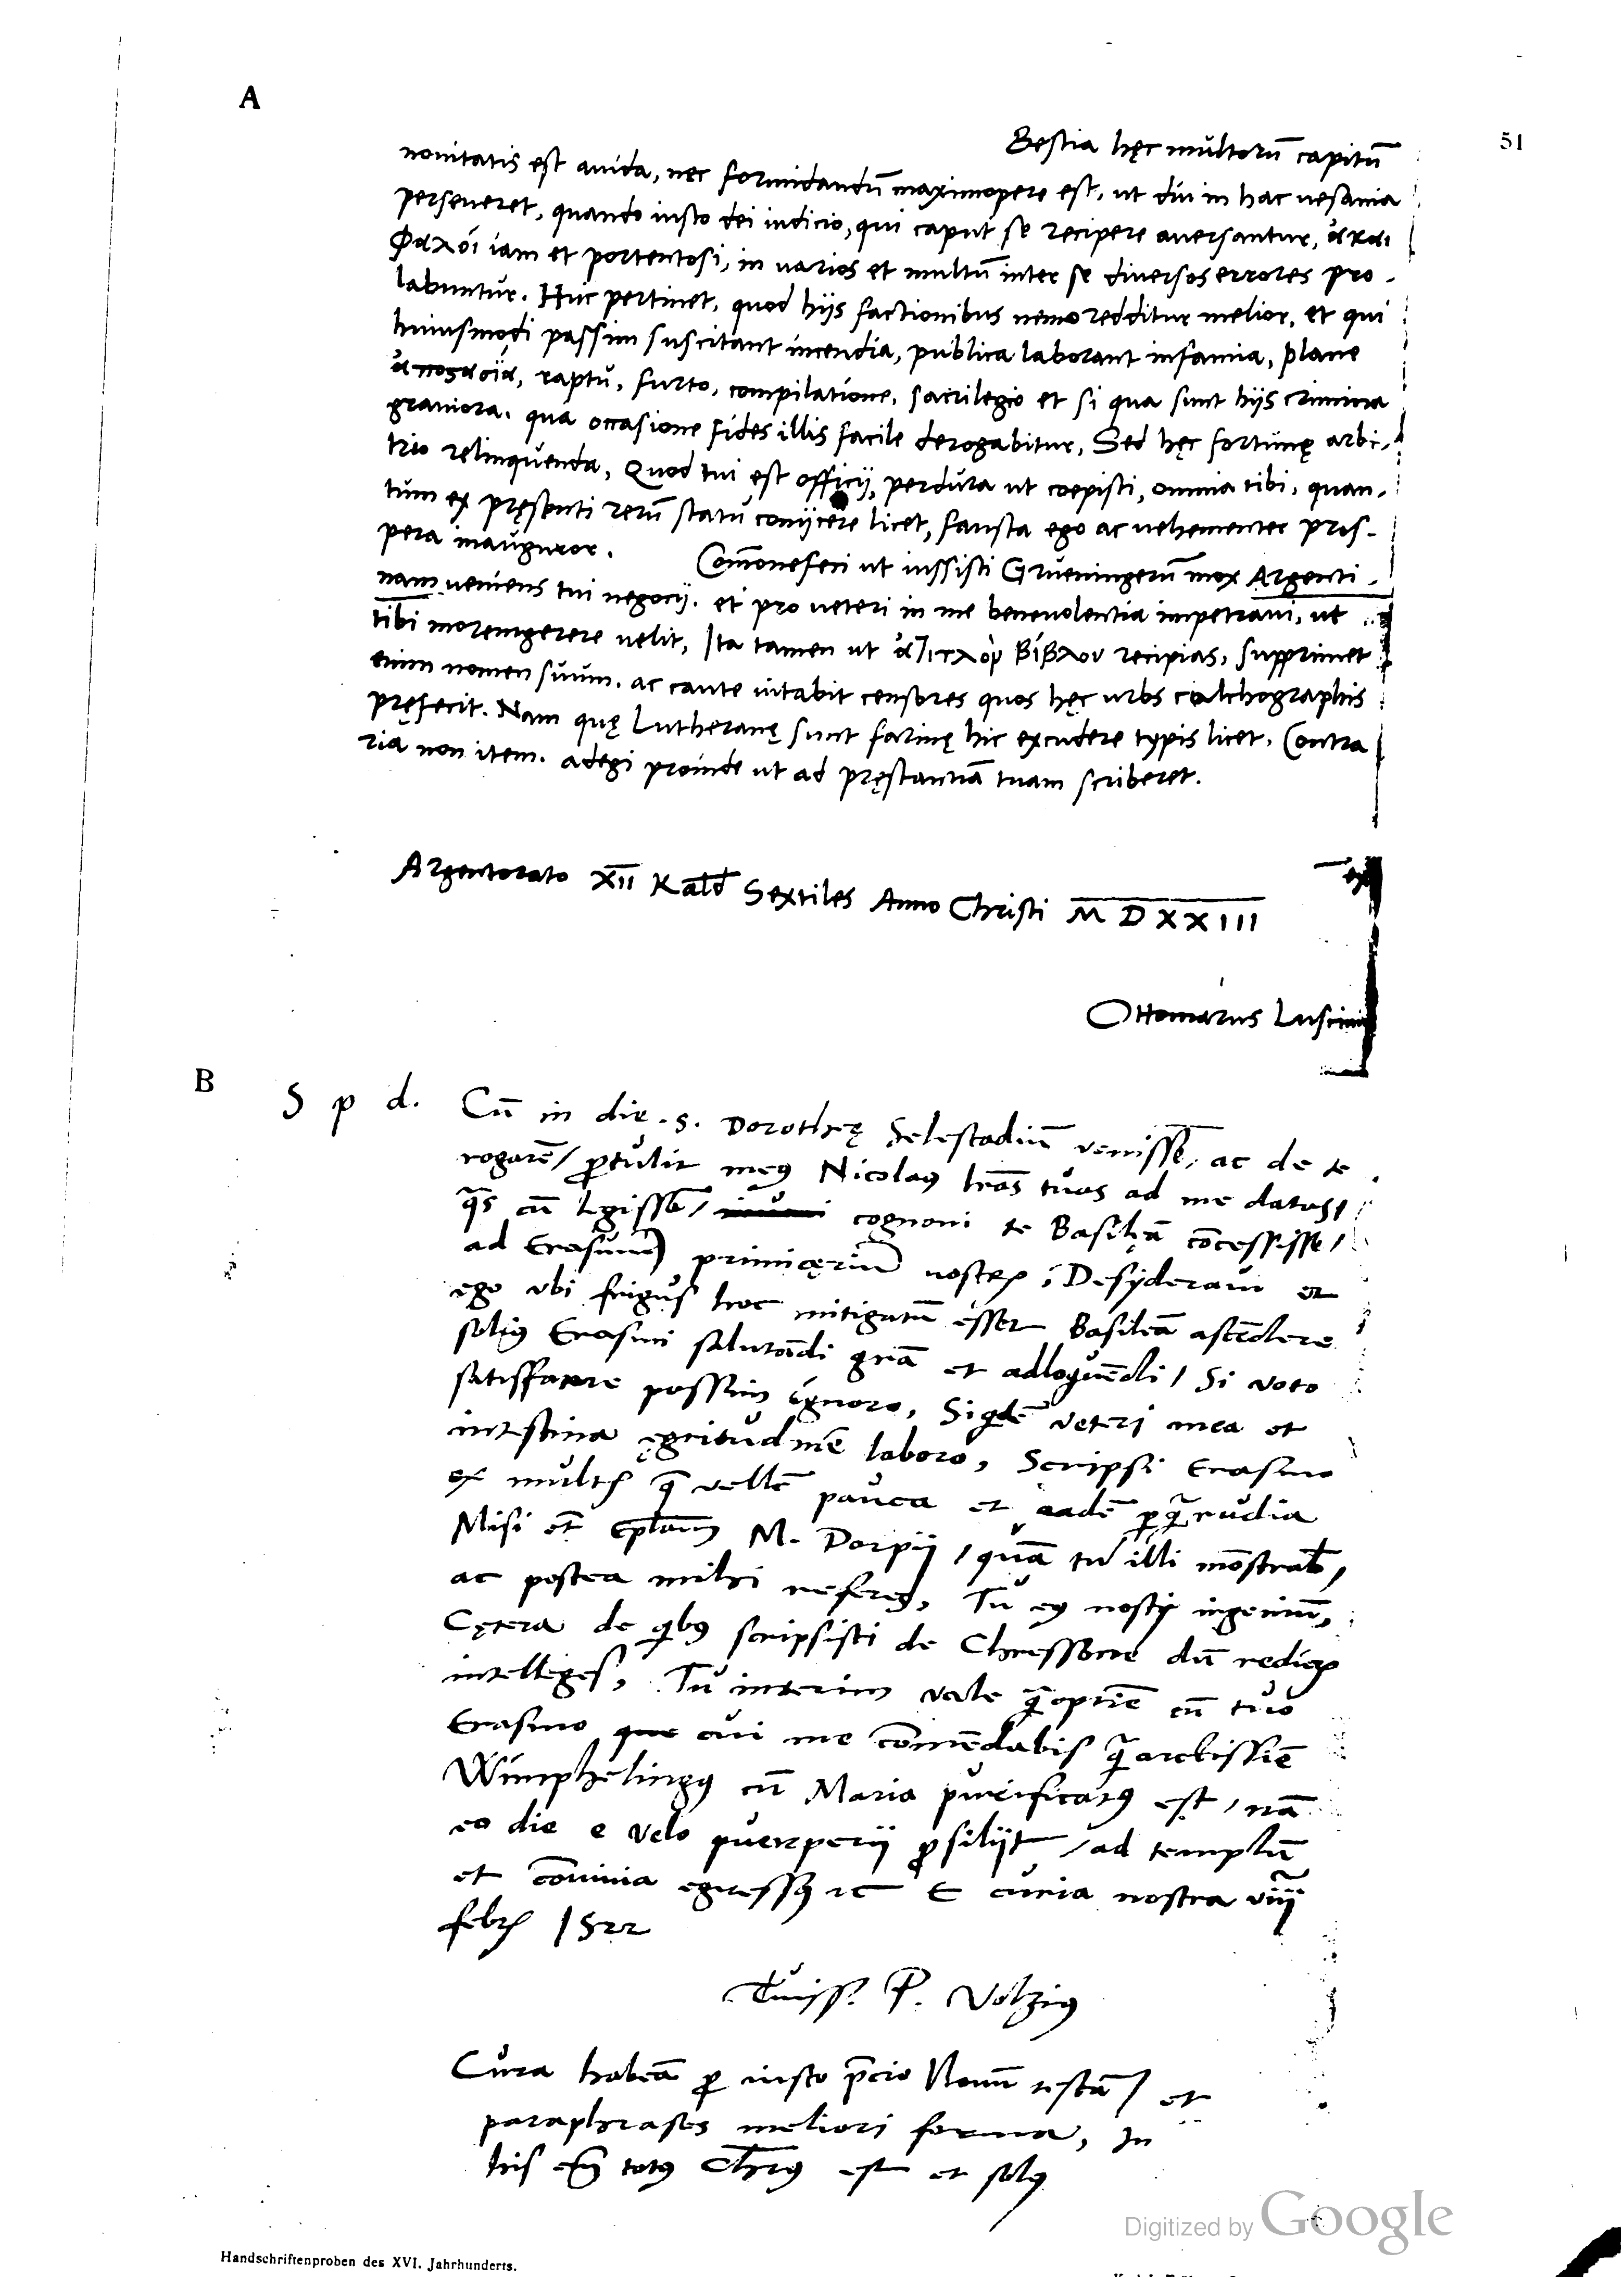 A
51
Bestia hęc multorū capitū
nouitatis est auida, nec formidandū maximopere est, ut diu in hac uesania
perseueret, quando iusto dei iudicio, qui caput se recipere auersantur,
iam et portentosi, in uarios et multū inter se diuersos errores pro-
labuntur. Huc pertinet, quod hijs factionibus nemo redditur melior, et qui
huiusmodi passim suscitant incendia, publica laborant infamia, plane
raptu, furto, compilatione, sacrilegio et si qua sunt hijs crimina
grauiora. qua occasione fides illis facile derogabitur, Sed hęc fortunę arbi-
trio relinquenda, Quod tui est officij, perdura ut coepisti, omnia tibi, quan-
tum ex pręsenti rerū statu conijcere licet, fausta ego ac uehementer pros-
pera inauguror. Com̄onefeci ut iussisti Grueningerū mox Argenti-
nam ueniens tui negocij. et pro ueteri in me beneuolentia impetraui, ut
tibi moremgerere uelit, Ita tamen ut βίβλον recipias, supprimet
enim nomen suum. ac caute uitabit censores quos hęc urbs calchographis
pręfecit. Nam quę Lutheranę sunt farinę hic excudere typis licet. Contra
ria non item. adegi proinde ut ad pręstantiā tuam scriberet.
Argentorato XII Kald Sextiles Anno Christi M D X X I I I
Ottomarus Luscini
B
S p d. Cū in die .S. Dorothę Selestadiū venissē, ac de te
rogarē / ꝓtulit meꝰ Nicolaꝰ lr̄as tuas ad me datas /
q̄s cū legissē / cognoui te Basileā cōcessisse /
ad Erasmū primicęriū nostrū; Desyderaui et
ego vbi frigus hoc mitigatū esset Basileā ascēdere
soliꝰ Erasmi salutādi grā et adloquēdi / Si voto
satisfacere possim ignoro, Siqdē veteri mea et
intestina ęgritudinē laboro, Scripsi Erasmo
ex multis q̄ vellē pauca et eadē ꝑq̄rudia
Misi et ep̄lam M. Dorpij / quā tu illi mōstrab /
ac postea mihi referes, Tu eꝰ nosti ingeniū,
Cętera de qibꝰ scripsisti de Chressone dū rediero
intelleges, Tu interim vale q̄optīe cū tuo
Erasmo cui me cōmēdabis q̄arctissīe
Wimphelingꝰ cū Maria purificatꝰ est / nā
ea die e velo puerperij ꝓsilijt / ad templū
et cōuiuia egressꝰ E curia nostra viij
febr 1522
Tuiss. P. Volzius
Cura habeā ꝓ iusto p̄cio Nouū testā / et
paraphrases meliori forma, In
his eī totꝰ Chrꝰ est et solꝰ
Digitized by Google
Handschriftenproben des XVI. Jahrhunderts.